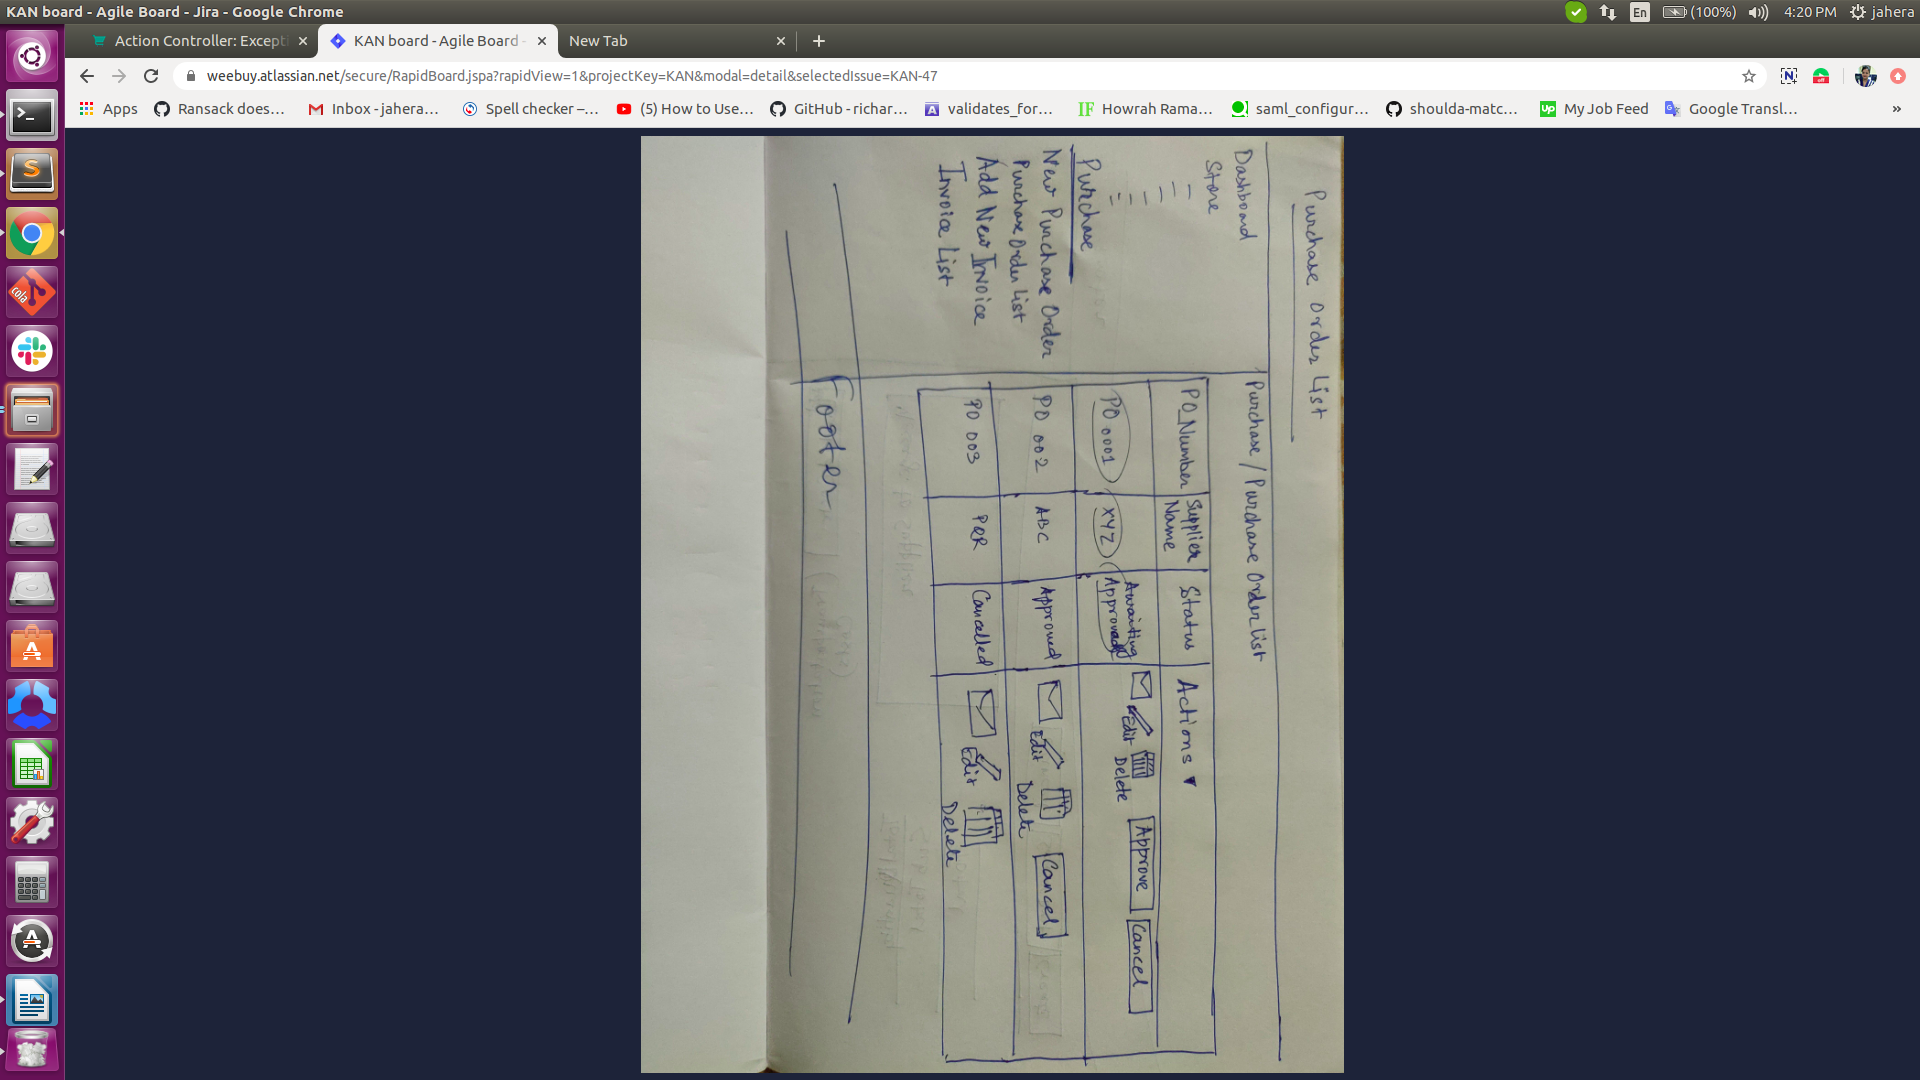 KAN board - Agile Board - Jira - Google Chrome
En (100%) 4:20 PM jahera
Action Controller: Except
KAN board - Agile Board -
New Tab
weebuy.atlassian.net/secure/RapidBoard.jspa?rapidView=1&projectKey=KAN&modal=detail&selectedIssue=KAN-47
Apps
Ransack does...
Inbox - jahera...
Spell checker –...
(5) How to Use...
GitHub - richar...
validates_for...
Howrah Rama...
saml_configur...
shoulda-matc...
My Job Feed
Google Transl...
»
Purchase Order List
Dashboard
Store
Purchase
New Purchase Order
Purchase Order List
Add New Invoice
Invoice List
Purchase / Purchase Order List
PO_Number Supplier Name Status Actions
PO 0001 XYZ Awaiting Edit Delete Approve Cancel
PO 002 ABC Approved Edit Delete Cancel
PO 003 PQR Cancelled Edit Delete
Footer